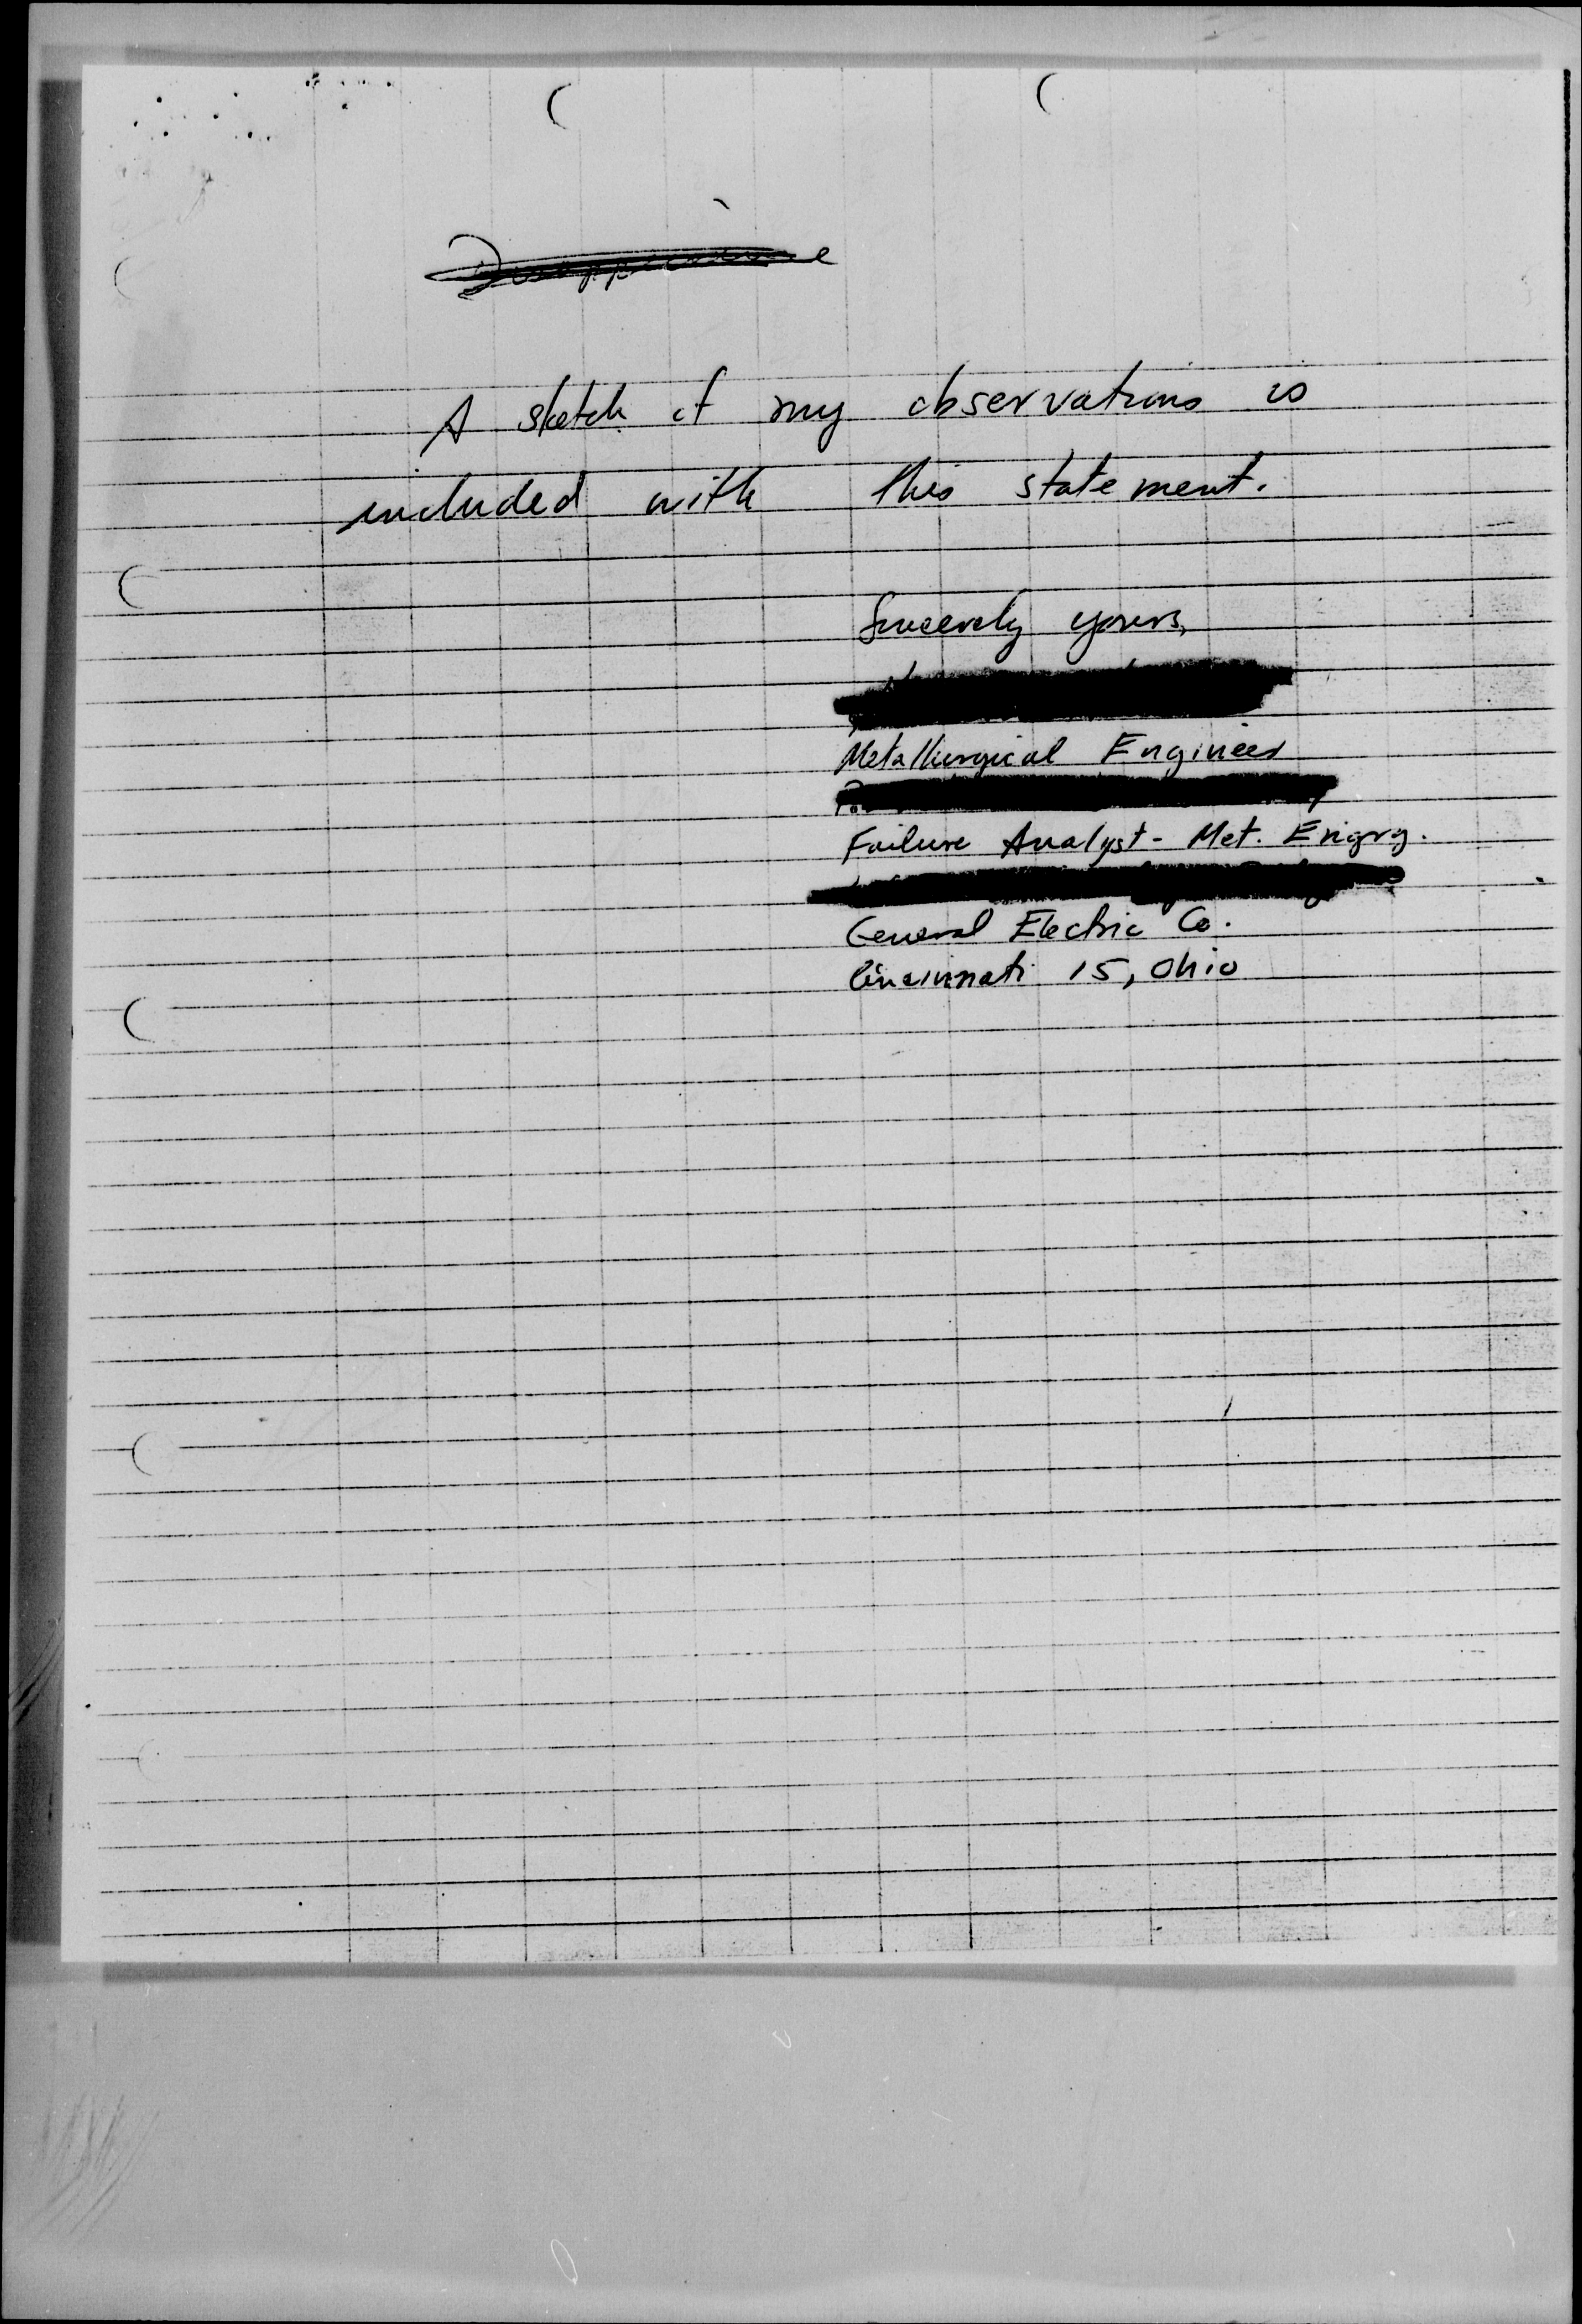 A sketch of my observations is
included with this statement.
Sincerely yours,
Metallurgical Engineer
Failure Analyst - Met. Engrg.
General Electric Co.
Cincinnati 15, Ohio